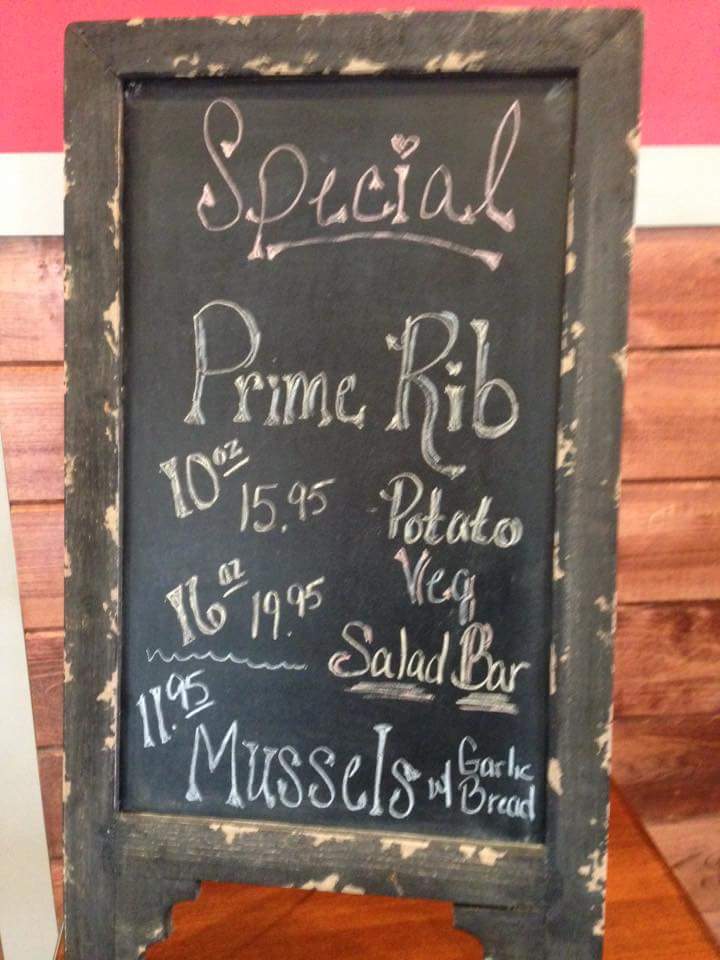 Special
Prime Rib
10 oz 15.95
16 oz 19.95
Potato
Veg
Salad Bar
11.95
Mussels w/ Garlic Bread